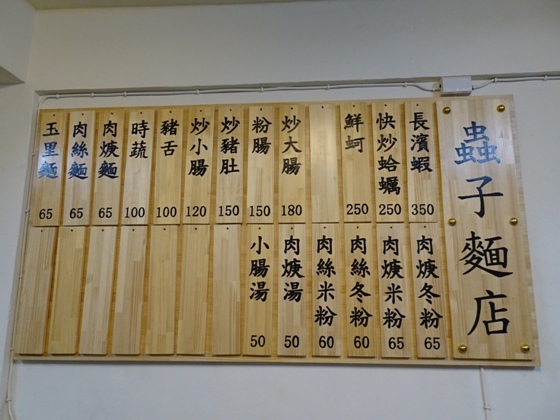 蟲子麵店
長濱蝦 350
快炒蛤蠣 250
鮮蚵 250
炒大腸 180
粉腸 150
炒豬肚 150
炒小腸 120
豬舌 100
時蔬 100
肉焿麵 65
肉絲麵 65
玉里麵 65
肉焿冬粉 65
肉焿米粉 65
肉絲冬粉 60
肉絲米粉 60
肉焿湯 50
小腸湯 50